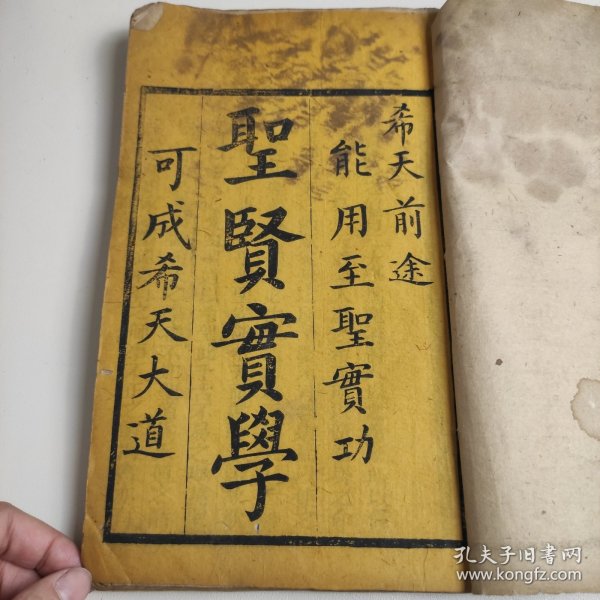 希天前途
能用至聖實功
聖賢實學
可成希天大道
孔夫子旧书网
www.kongfz.com